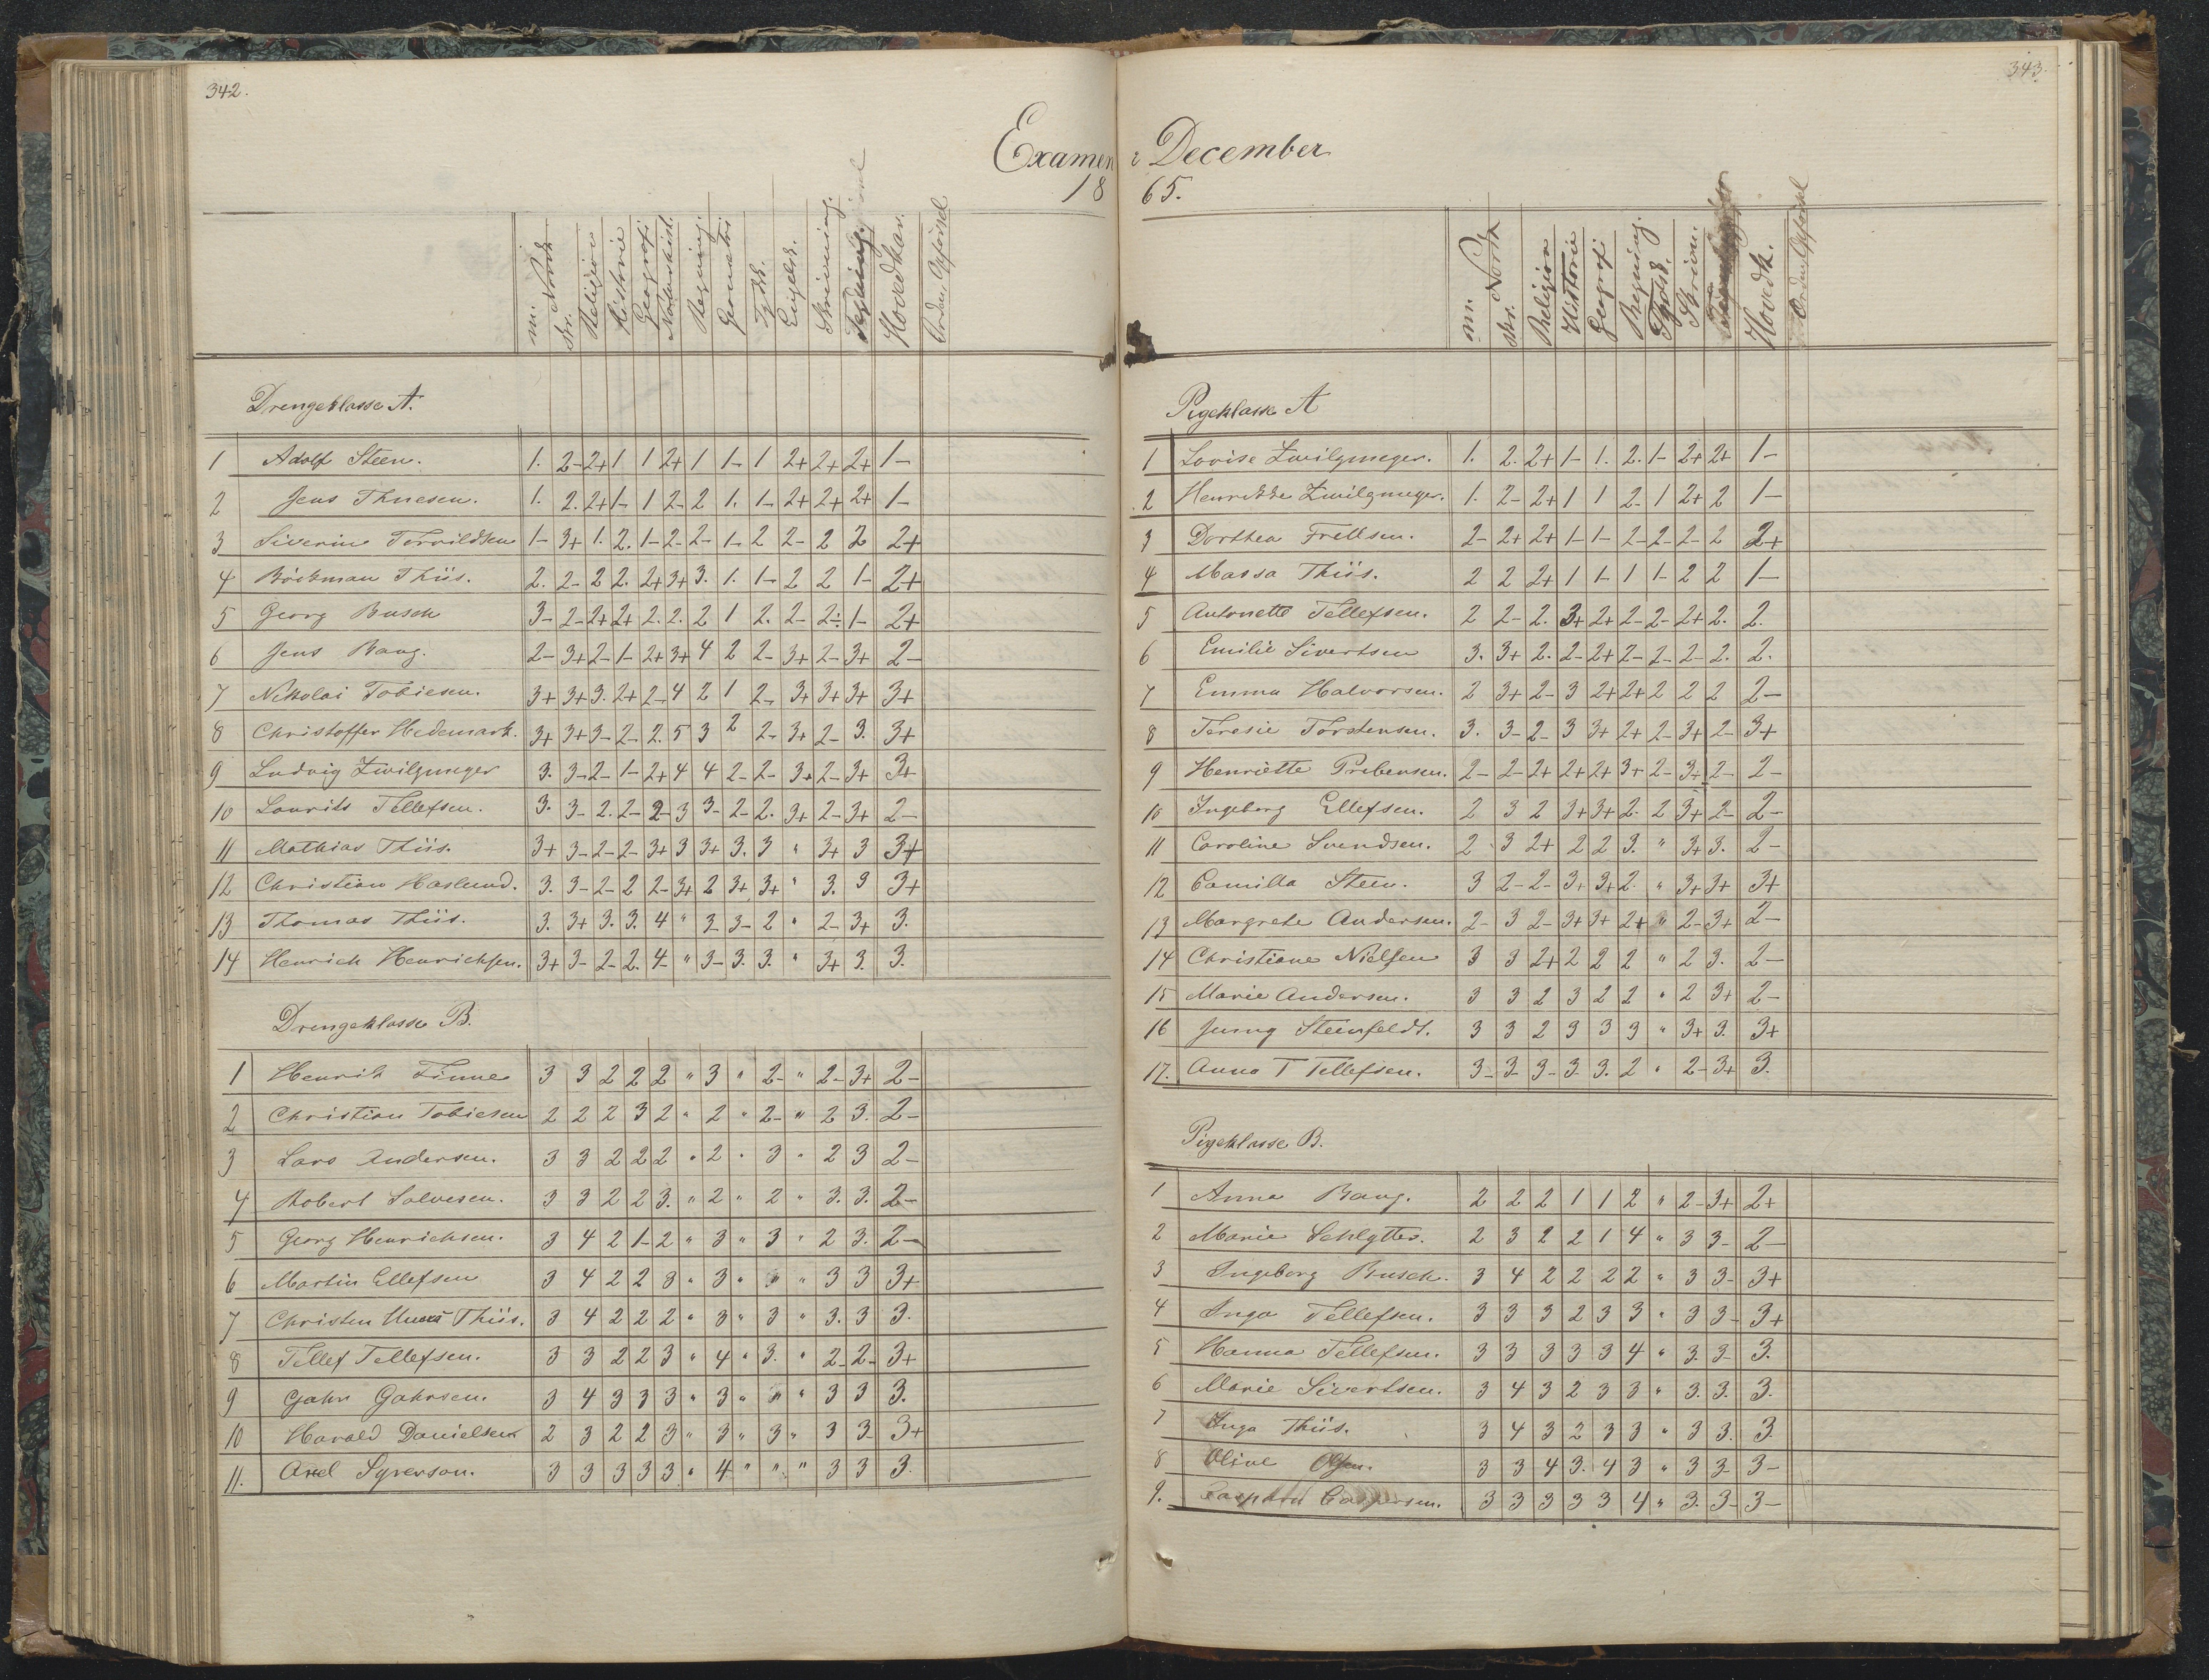 342.
Examen
18
m. Norsk
skr.
Religion
Historie
Geografi
Naturhist.
Regning
Geometri
Tydsk.
Engelsk.
Skrivning.
Hovedkar.
Orden, Opførsel
Drengeklasse A.
1 Adolf Steen. 1. 2- 2+ 1 1 2+ 1 1- 1 2+ 2+ 2+ 1-
2 Jens Thuesen. 1. 2. 2+ 1- 1 2- 2 1. 1- 2+ 2+ 2+ 1-
3 Siverin Torvildsen 1- 3+ 1. 2. 1- 2- 2- 1- 2 2- 2 2 2+
4 Böckman Thiis. 2. 2- 2 2. 2+ 3+ 3. 1. 1- 2 2 1- 2+
5 Georg Busch 3- 2- 2+ 2+ 2. 2. 2 1 2. 2- 2- 1- 2+
6 Jens Bang. 2- 3+ 2- 1- 2+ 3+ 4 2 2- 3+ 2- 3+ 2-
7 Nikolai Tobiesen. 3+ 3+ 3. 2+ 2- 4 2 1 2- 3+ 3+ 3+ 3+
8 Christoffer Hedemark. 3+ 3+ 3- 2- 2. 5 3 2 2- 3+ 2- 3. 3+
9 Ludvig Zwilgmeyer 3. 3- 2- 1- 2+ 4 4 2- 2- 3+ 2- 3+ 3+
10 Laurits Tellefsen. 3. 3- 2. 2- 2- 3 3- 2- 2. 3+ 2- 3+ 2-
11 Mathias Thiis. 3+ 3- 2- 2- 3+ 3 3+ 3. 3 " 3+ 3 3+
12 Christian Haslund. 3. 3- 2- 2 2- 3+ 2 3+ 3+ " 3. 3 3+
13 Thomas Thiis. 3. 3+ 3. 3. 4 " 3 3- 2 " 2- 3+ 3.
14 Henrich Henrichsen. 3+ 3- 2- 2. 4- " 3- 3. 3. " 3+ 3. 3.
Drengeklasse B.
1 Henrik Finne 3 3 2 2 2 " 3 " 2- " 2- 3+ 2-
2 Christian Tobiesen 2 2 2 3 2 " 2 " 2- " 2 3. 2-
3 Lars Andersen. 3 3 2 2 2 " 2 " 3 " 2 3 2-
4 Robert Salvesen. 3 3 2 2 3. " 2 " 2 " 3. 3. 2-
5 Georg Henrichsen. 3 4 2 1- 2 " 3 " 3 " 2 3. 2-
6 Martin Ellefsen 3 4 2 2 3 " 3 " " " 3 3 3+
7 Christen Thiis. 3 4 2 2 2 " 3 " 3 " 3. 3 3.
8 Tellef Tellefsen. 3 3 2 2 3 " 4 " 3. " 2- 2- 3+
9 Gahr Gahrsen. 3 4 3 3 3 " 3 " " " 3 3 3.
10 Harald Danielsen 2 3 2 2 3 " 3 " 3 " 3 3- 3+
11. Axel Syverson. 3 3 3 3 3 " 4 " " " 3 3 3.
343.
i December
65.
m. Norsk
skr.
Religion
Historie
Geografi
Regning.
Tydsk.
Skrivn.
Hovedk.
Orden, Opførsel
Pigeklasse A
1 Lovise Zwilgmeyer. 1. 2. 2+ 1- 1. 2. 1- 2+ 2+ 1-
2 Henrikke Zwilgmeyer. 1. 2- 2+ 1 1 2- 1 2+ 2 1-
3 Dorthea Frellsen. 2- 2+ 2+ 1- 1- 2- 2- 2- 2 2+
4 Massa Thiis. 2 2 2+ 1 1- 1 1- 2 2 1-
5 Antonette Tellefsen. 2 2- 2. 3+ 2+ 2- 2- 2+ 2. 2.
6 Emilie Sivertsen 3. 3+ 2. 2- 2+ 2- 2- 2- 2. 2.
7 Emma Halvorsen. 2 3+ 2- 3 2+ 2+ 2 2 2 2-
8 Teresie Torstensen. 3. 3- 2- 3 3+ 2+ 2- 3+ 2- 3+
9 Henriette Prebensen. 2- 2- 2+ 2+ 2+ 3+ 2- 3+ 2- 2-
10 Ingeborg Ellefsen. 2 3 2 3+ 3+ 2- 2 3+ 2- 2-
11 Caroline Svendsen. 2 3 2+ 2 2 3. " 3+ 3. 2-
12 Camilla Steen. 3 2- 2- 3+ 3+ 2. " 3+ 3+ 3+
13 Margrete Andersen. 2- 3 2- 3+ 3+ 2+ " 2- 3+ 2-
14 Christiane Nielsen 3 3 2+ 2 2 2 " 2 3. 2-
15 Marie Andersen. 3 3 2 3 2 2 " 2 3+ 2-
16 Jenny Steinfeldt. 3 3 2 3 3 3 " 3+ 3. 3+
17. Anna T Tellefsen. 3- 3- 3- 3- 3. 2 " 2- 3+ 3.
Pigeklasse B.
1 Anna Bang. 2 2 2 1 1 2 " 2- 3+ 2+
2 Marie Schlytter. 2 3 2 2 1 4 " 3 3- 2-
3 Ingeborg Busch. 3 4 2 2 2 2 " 3 3- 3+
4 Inga Tellefsen. 3 3 3 2 3 3 " 3 3- 3+
5 Hanna Tellefsen. 3 3 3 3 3 4 " 3. 3- 3.
6 Marie Sivertsen. 3 4 3 2 3 3 " 3. 3. 3.
7 Inga Thiis. 3 4 3 2 3 3 " 3 3. 3
8 Oline Olsen. 3 3 4 3. 4 3 " 3 3- 3-
9. Caspersen. 3 3 3 3 3 4 " 3. 3- 3-